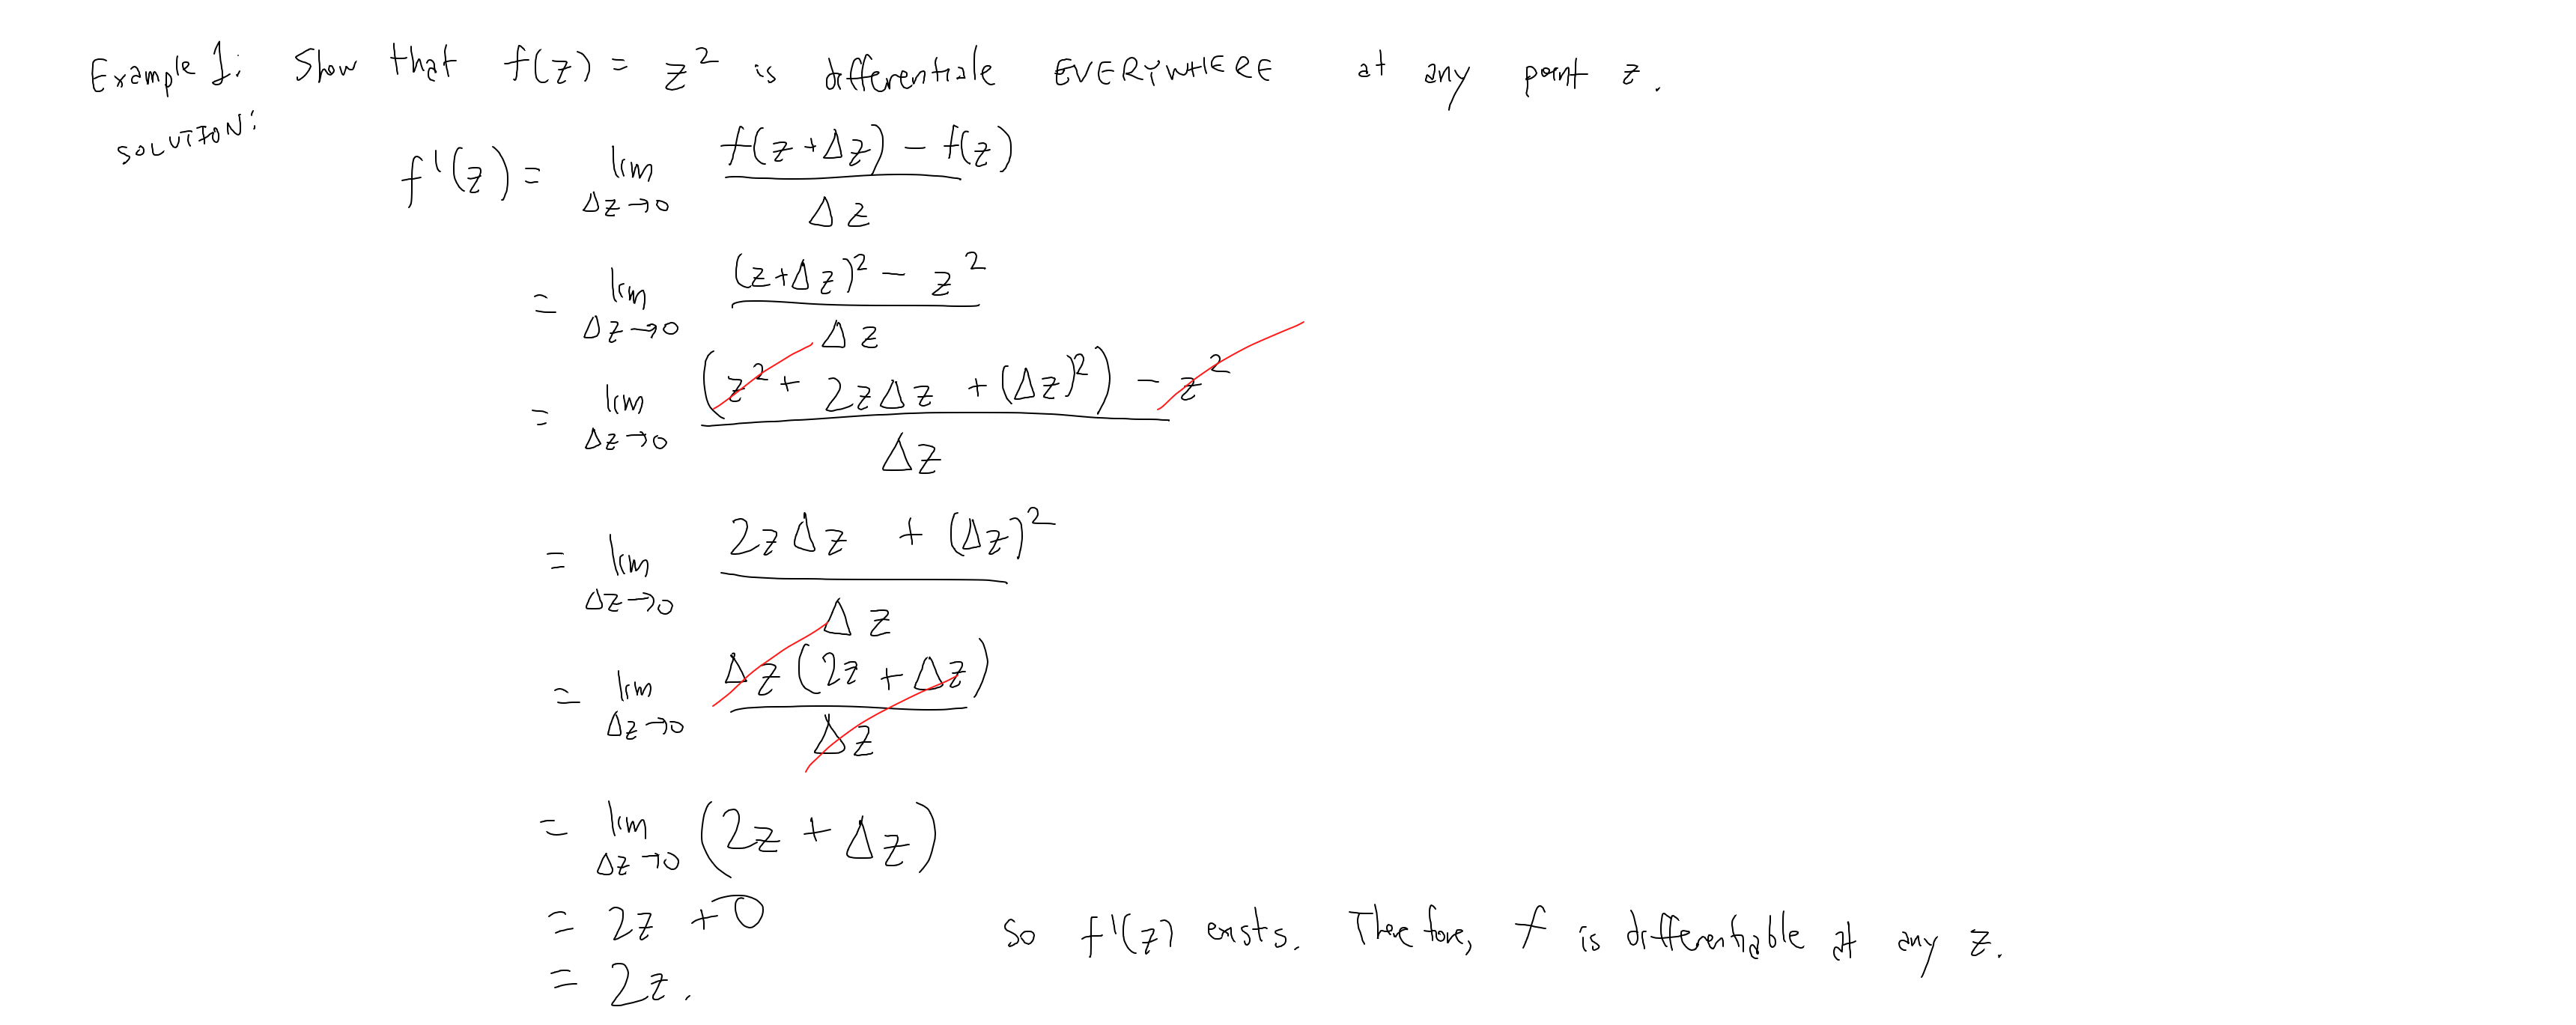 Example 1: Show that f(z) = z² is differentiale EVERYWHERE at any point z.
SOLUTION:
f'(z) = lim Δz→0 (f(z+Δz) - f(z)) / Δz
= lim Δz→0 ((z+Δz)² - z²) / Δz
= lim Δz→0 ((z² + 2zΔz + (Δz)²) - z²) / Δz
= lim Δz→0 (2zΔz + (Δz)²) / Δz
= lim Δz→0 Δz(2z + Δz) / Δz
= lim Δz→0 (2z + Δz)
= 2z + 0 So f'(z) exists. Therefore, f is differentiable at any z.
= 2z.